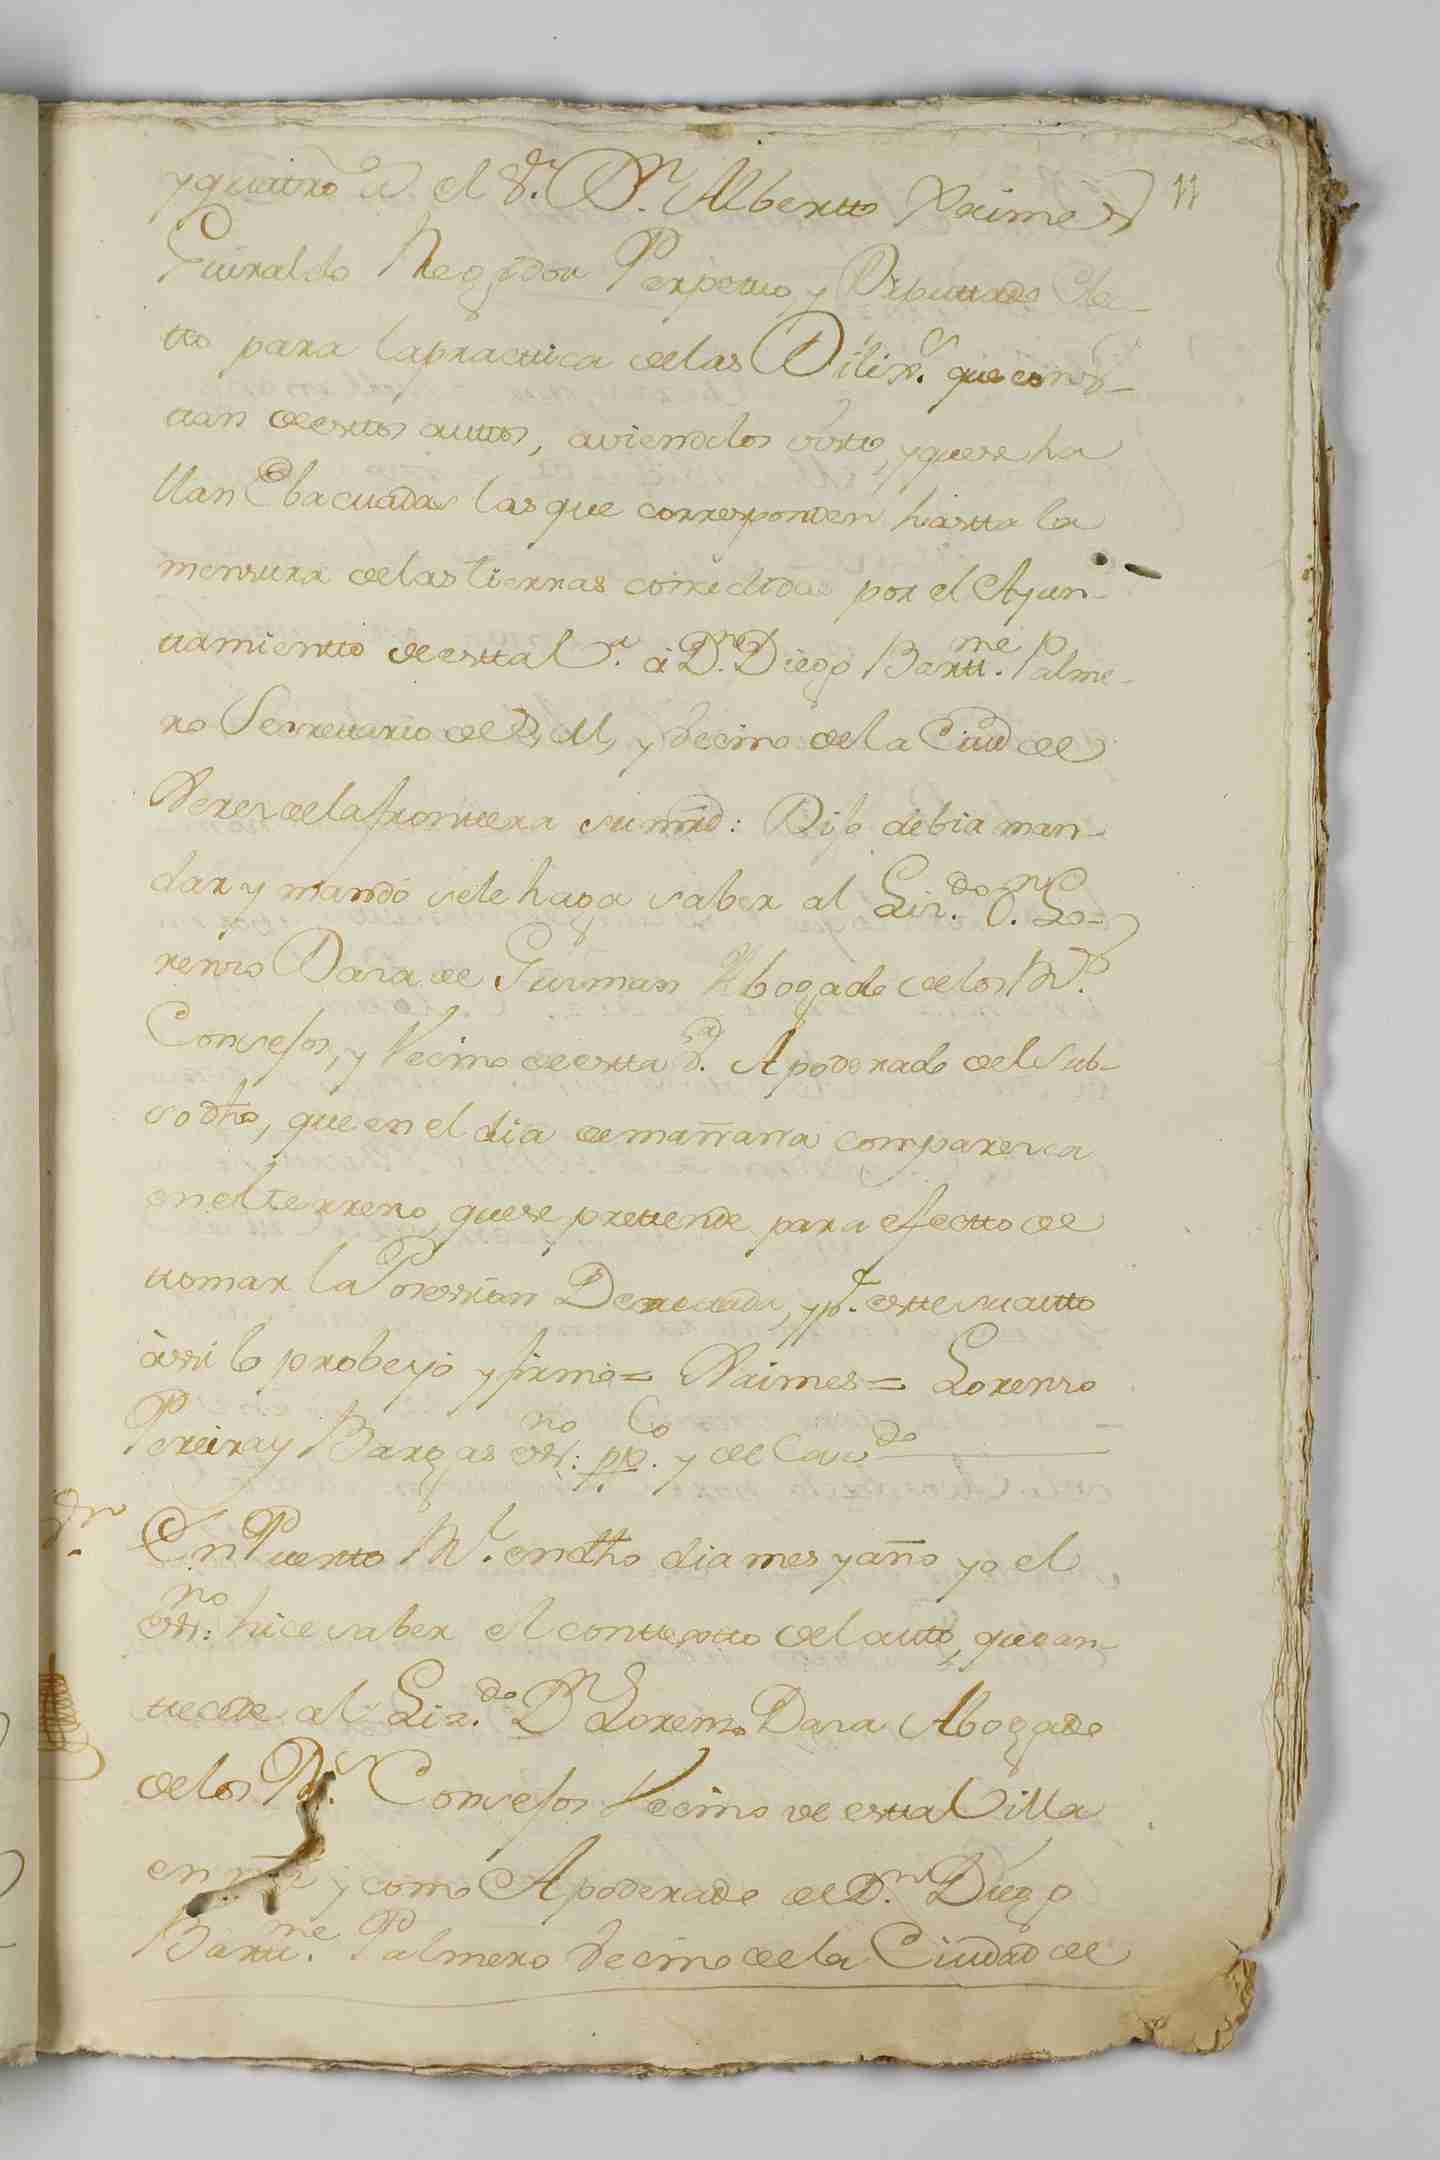 11
y quatro a. el Sr. Dn. Albertto Xaimes
Guiraldo Regidor Perpetuo y Diputtado Elec-
tto para la practtica de las Dilixs. que cons-
ttan de esttos auttos, aviendolos visto, y que se ha
llan Ebacuadas las que corresponden hastta la
mensura de las tierras consedidas por el Ayun-
ttamiento de estta Va. à Dn. Diego Barttme. Palme-
ro Secrettario de S, M, y Vecino de la Ciud de
Xerez de la fronttera su mrd: Dijo debia man-
dar y mandó se le haga saber al Lizdo. Dn. Lo-
renzo Daza de Guzman Abogado de los Rs.
Consejos, y Vecino de estta Va. Apoderado del Sub-
sodho, que en el dia de mañana comparezca
en el tterreno, que se prettende para efectto de
ttomar la Posesion Decrettada, y pr. estte su autto
àssi lo probeyó y firmó = Xaimes = Lorenzo
Pereira y Bargas essno: ppco. y de Cavdo
En Puertto Rl. en dho dia mes y año yo el
essno: hice saber el conttestto del autto, que an-
ttecede al Lizdo. Dn Lorenzo Daza Abogado
de los Rs. Consejos Vecino de estta Villa
en y como Apoderado de Dn. Diego
Barttme. Palmero Vecino de la Ciudad de